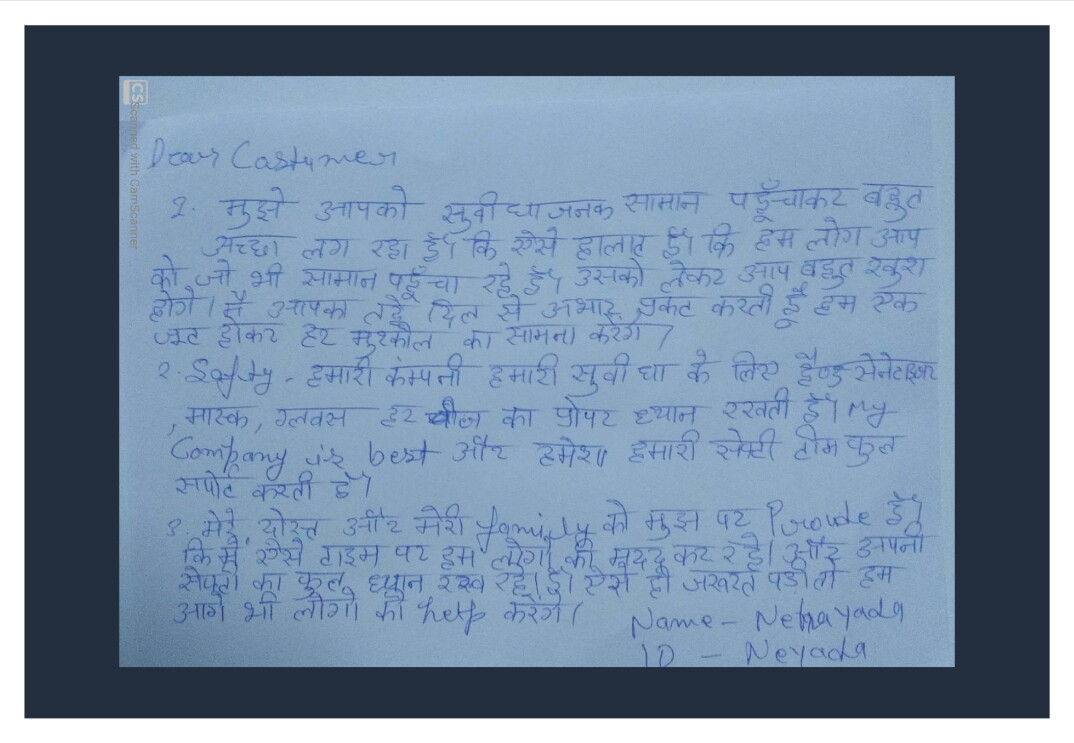 CS Scanned with CamScanner
Dear Castumer
1. मुझे आपको सुवीधाजनक सामान पहूँचाकर बहुत
अच्छा लग रहा है। कि ऐसे हालात है। कि हम लोग आप
को जो भी सामान पहूँचा रहे है। उसको लेकर आप बहुत खुश
होगे। मै आपका तहे दिल से अभार प्रकट करती हूँ हम एक
जूट होकर हर मुश्कील का सामना करेगे।
2. Safty - हमारी कंम्पनी हमारी सुवीधा के लिए हैण्ड सेनेटाइजर
, मास्क, ग्लवस हर चीज का प्रोपर ध्यान रखती है। My
Company is best और हमेशा हमारी सेफ्टी टीम फुल
सपोर्ट करती है।
3. मेरे दोस्त और मेरी family को मुझ पर Proude है।
कि मै ऐसे टाइम पर हम लोगो की मदद कर रहे। और अपनी
सेफ्टी का फुल ध्यान रख रहे। है। ऐसे ही जरुरत पडी तो हम
आगे भी लोगो की help करेगे।
Name - Neha yada
ID - Neyada